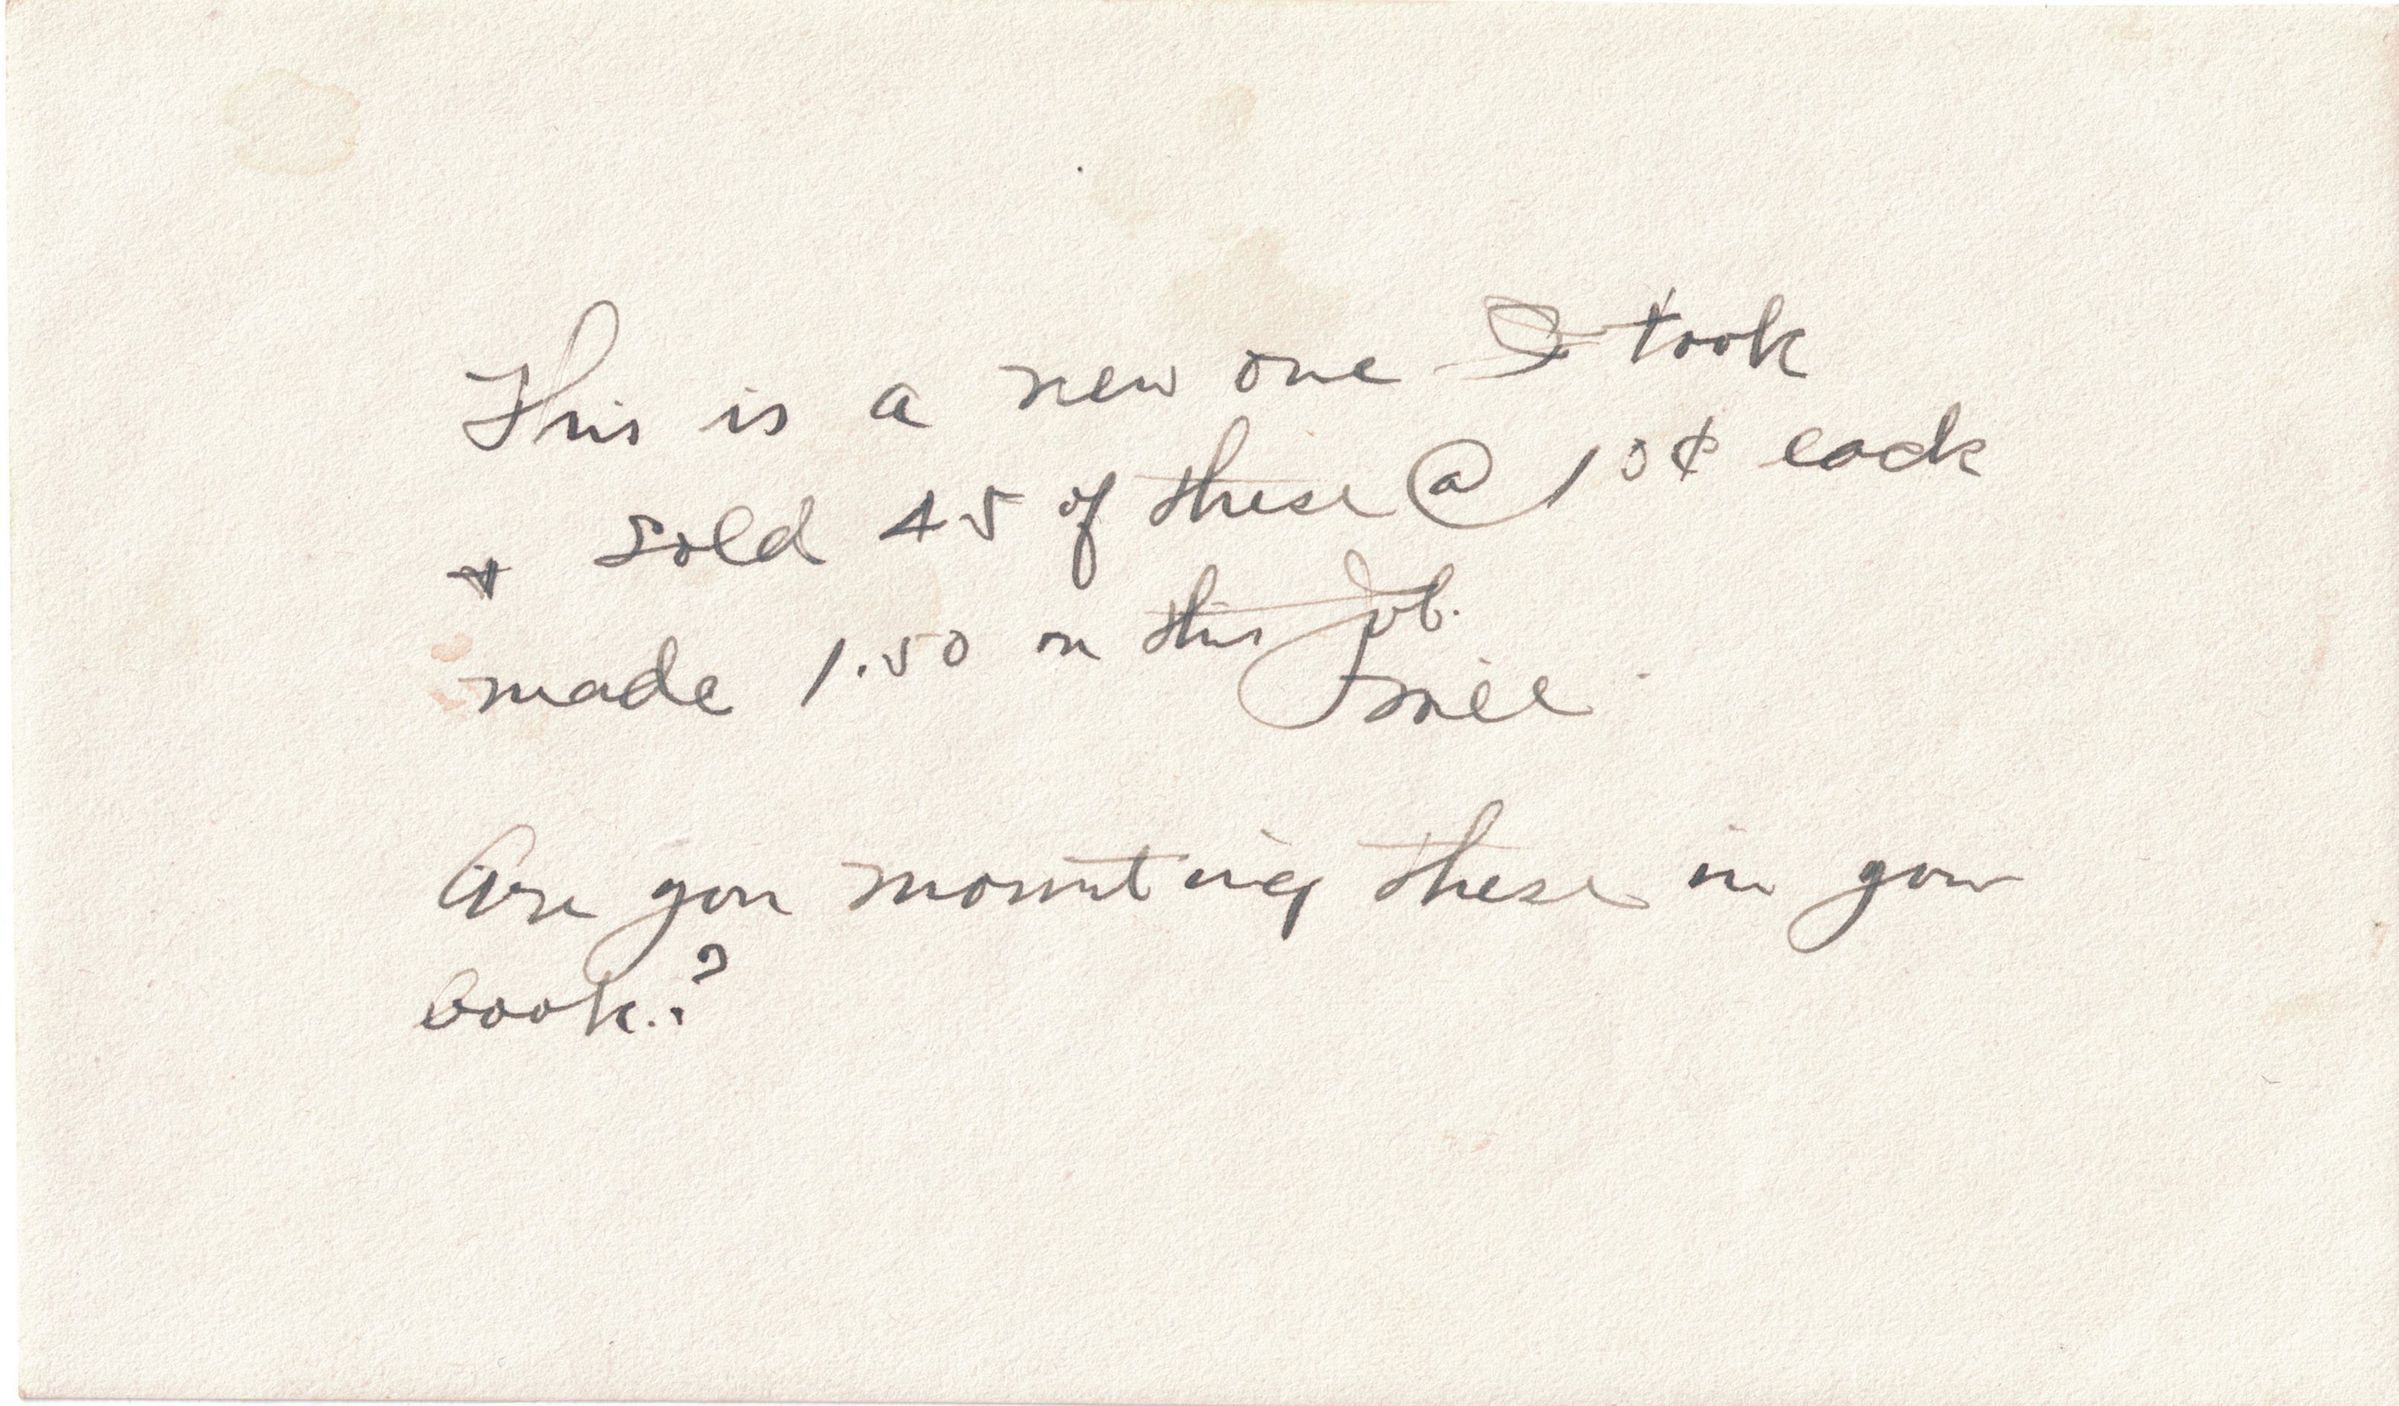 This is a new one I took
& sold 45 of these @ 10¢ each
made 1.50 on this job.
Are you mounting these in your
book.?